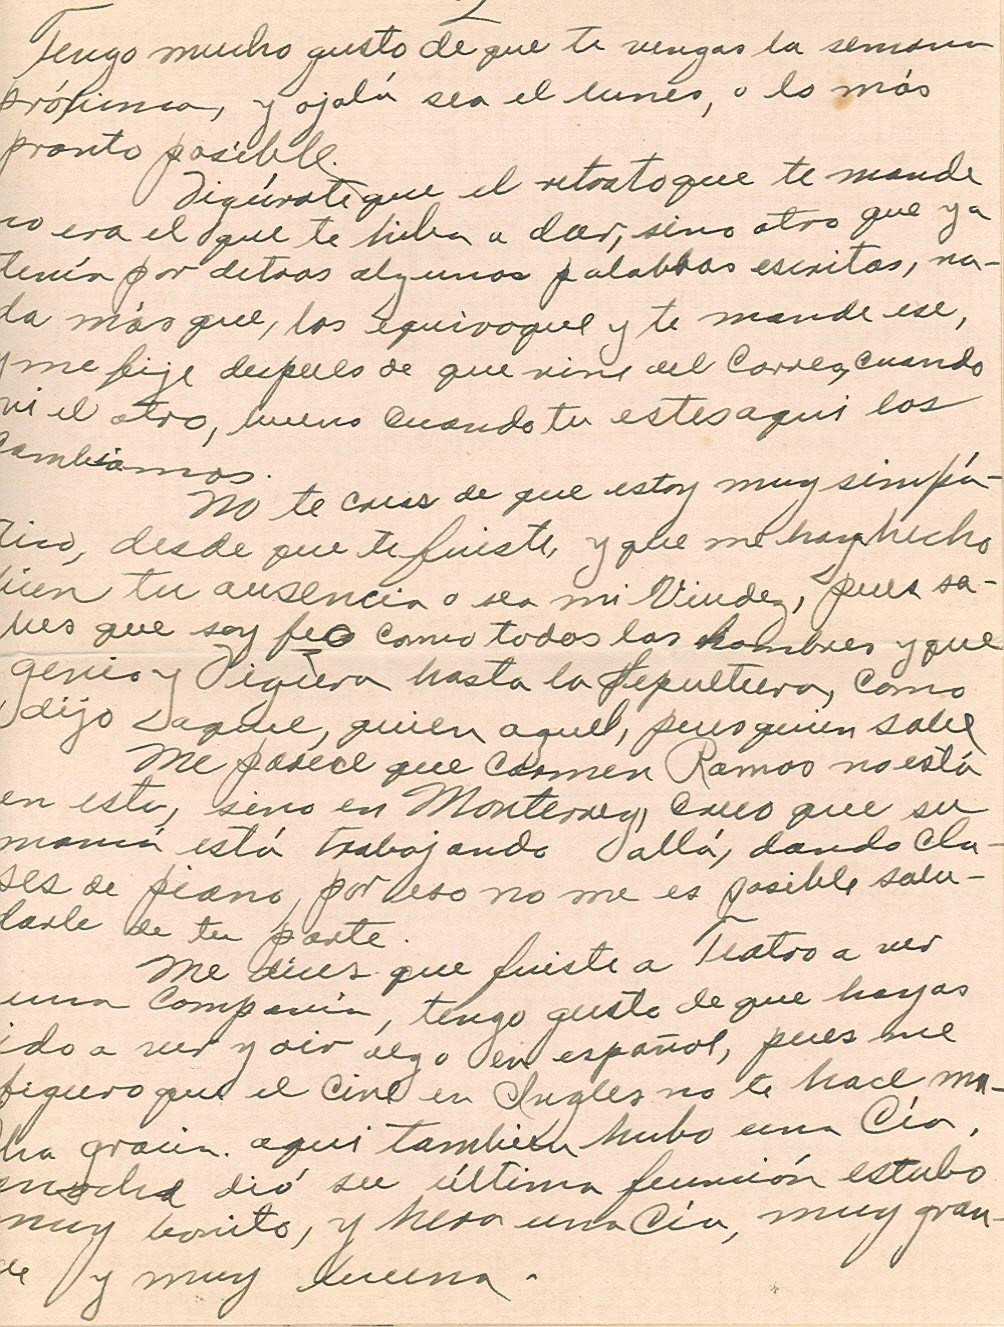 2
Tengo mucho gusto de que te vengas la semana
próxima, y ojalá sea el lunes, o lo más
pronto posible.
Figúrate que el retrato que te mande
no era el que te hiba a dar, sino otro que ya
tenía por detras algunas palabras escritas, na-
da más que, los equivoque y te mande ese,
y me fije despues de que vine del Correo, cuando
vi el otro, bueno cuando tu estes aqui los
cambiamos.
No te creas de que estoy muy simpá-
tico, desde que te fuiste, y que me haya hecho
bien tu ausencia o sea mi Viudez, pues sa-
bes que soy feo como todos los hombres y que
genio y Figura hasta la Sepultura, como
dijo quien aquel, pues quien sabe
Me parece que Carmen Ramos no está
en esta, sino en Monterrey, creo que su
mamá está trabajando allá, dando cla-
ses de piano, por eso no me es posible salu-
darle de tu parte.
Me dices que fuiste a Teatro a ver
una Compania, tengo gusto de que hayas
ido a ver y oir algo en español, pues me
figuro que el Cine en Ingles no te hace mu-
cha gracia. aqui tambien hubo una Cía,
anoche dió su última funsión estubo
muy bonito, y hera una Cía, muy gran-
de y muy buena.